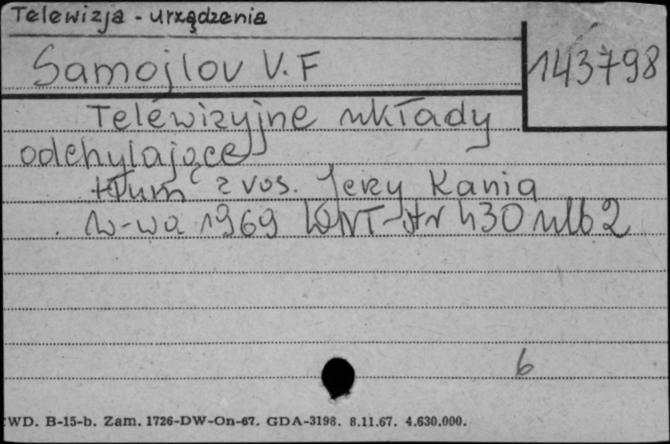 Telewizja - urządzenia
143798
Samojlov V. F
Telewizyjne układy
odchylające
tłum z ros. Jerzy Kania
W-wa 1969 WNT str 430 nlb 2
6
WD. B-15-b. Zam. 1726-DW-On-67. GDA-3198. 8.11.67. 4.630.000.